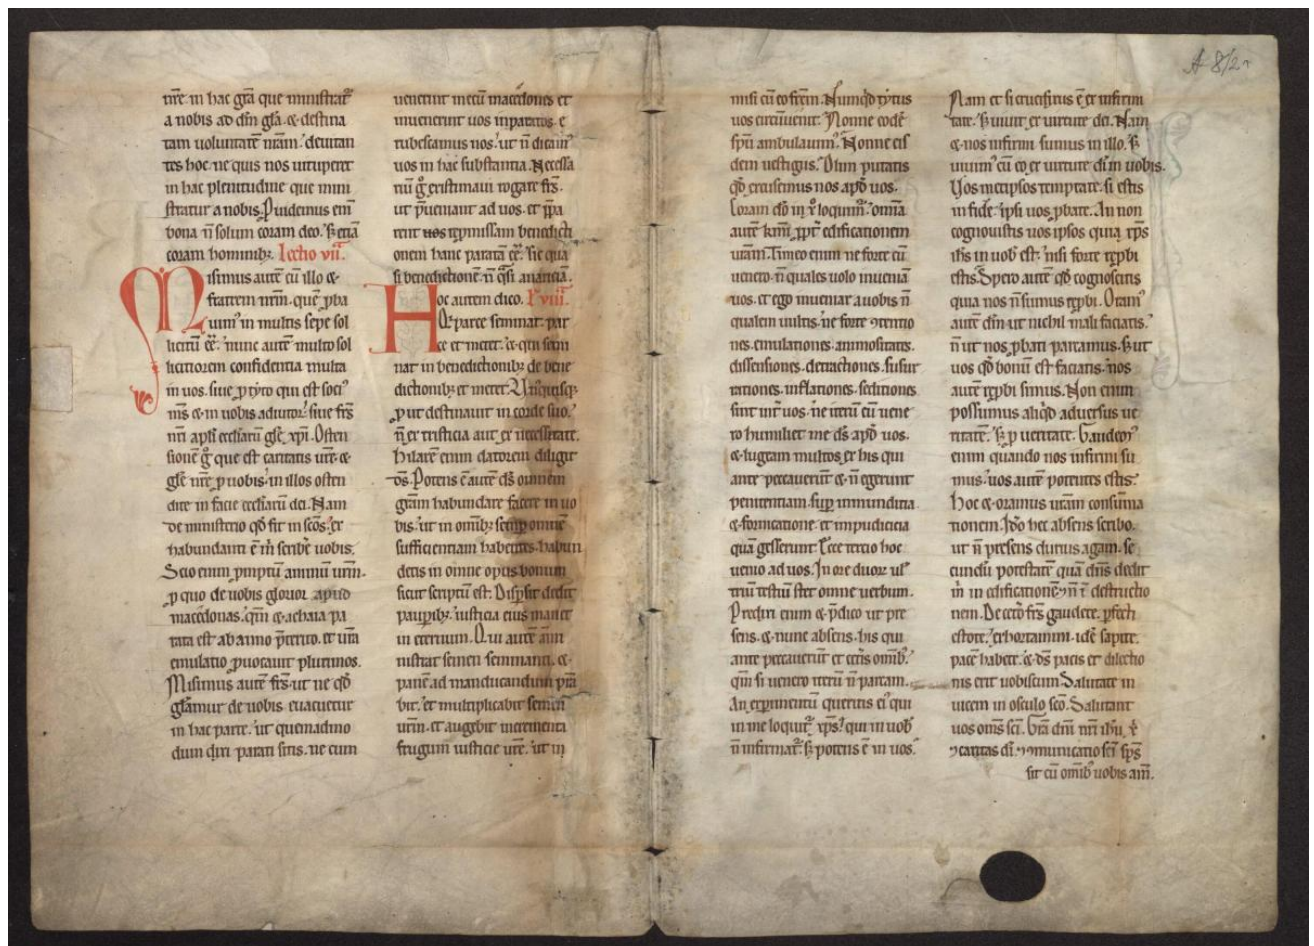 nr̄e in hac gr̄a que ministrat᷑
a nobis ad dn̄i gl̄a. ⁊ destina
tam voluntatē nr̄am. deuitan
tes hoc. ne quis nos uituperet
in hac plenitudine que mini
stratur a nobis. Prouidemus eni᷑
bona n̄ solum coram deo. sꝫ etiā
coram hominibꝫ. Lectio vii.
Misimus autē cū illo ⁊
fratrem nr̄m. quē ꝓba
uim᷒ in multis sepe sol
licitū ee᷑. nunc autē multo sol
licitiorem confidentia multa
in uos. siue ꝓ tyto qui est soci᷒
m̄s ⁊ in uobis adiutor. siue fr̄s
nr̄i apl̄i eccl̄iarū gl̄e xp̄i. Osten
sionē g̊ que est caritatis ur̄e. ⁊
gl̄e nr̄e ꝓ uobis. in illos osten
dite in facie eccl̄iarū dei. Nam
de ministerio qd̄ fit in sc̄os. ex
habundanti ē m̄ scribē uobis.
Scio enim ꝓmptū animū ur̄m.
ꝓ quo de uobis glorior apud
macedonas. qm̄ ⁊ achaia pa
rata est ab anno p̄terito. et ur̄a
emulatio ꝓuocauit plurimos.
Misimus autē fr̄s. ut ne qd̄
gl̄amur de uobis euacuetur
in hac parte. ut quemadmo
dum dixi parati sitis. ne cum
uenerint mecū macedones et
inuenerint uos inparatos. e
rubescamus nos. ut n̄ dicam᷒
uos in hac substantia. Necessa
riū g̊ existimaui rogare fr̄s.
ut p̄ueniant ad uos. et p̄pa
rent uos repmissam benedicti
onem hanc paratā ee᷑. sic qua
si benedictionē. n̄ q̄si auariciā.
Hoc autem dico. L. viii.
Qi parce seminat. par
ce et metet. ⁊ qui semi
nat in benedictionibꝫ de bene
dictionibꝫ et metet. Vn᷒quisqꝫ
ꝓut destinauit in corde suo.
n̄ ex tristicia aut ex necessitate.
hilarē enim datorem diligit
ds̄. Potens ē autē ds̄ omnem
gr̄am habundare facere in uo
bis. ut in omībꝫ semꝑ omnē
sufficientiam habentes. habun
detis in omne opus bonum
sicut scriptū est. Dispersit dedit
pauꝑibꝫ. iusticia eius manet
in eternum. Qui autē ami
nistrat semen seminanti. ⁊
panē ad manducandum pr̄a
bit. et multiplicabit semen
ur̄m. et augebit incrementa
frugum iusticie ur̄e. ut in
misi cū eo fr̄em. Numqd̄ tytus
uos circūuenit. Nonne codē
sp̄u ambulauim᷒. Nonne eis
dem uestigiis. Olim putatis
qd̄ excusemus nos apd̄ uos.
Coram dō in xp̄o loquim᷒. omīa
autē kmi ꝓpt᷑ edificationem
ur̄am. Timeo enim ne forte cū
uenero. n̄ quales uolo inueniā
uos. et ego inueniar a uobis n̄
qualem uultis. ne forte ꝯtentio
nes. emulationes. animositates.
dissensiones. detractiones. susur
rationes. inflationes. seditiones
sint int᷑ uos. ne iterū cū uene
ro humiliet me ds̄ apd̄ uos.
⁊ lugeam multos ex his qui
ante peccauerūt. ⁊ n̄ egerunt
penitentiam. suꝑ inmundicia
⁊ fornicatione. et impudicicia
quā gesserunt. Ecce tercio hoc
uenio ad uos. In ore duor̄ ul̄
triū testiū stet omne uerbum.
Predixi enim ⁊ p̄dico ut pre
sens. ⁊ nunc absens. his qui
ante peccauerūt et cet̄is omībꝫ.
qm̄ si uenero iterū n̄ parcam.
An experimentū queritis ei᷒ qui
in me loquit᷑ xp̄s. qui in uob̄
n̄ infirmat᷑. sꝫ potens ē in uos.
A 8/2r
Nam et si crucifixus ē ex infirmi
tate. sꝫ uiuit ex uirtute dei. Nam
⁊ nos infirmi sumus in illo. sꝫ
uiuim᷒ cū eo ex uirtute dī in uobis.
Uos metipsos temptate. si estis
in fide. ipsi uos ꝓbate. An non
cognoscitis uos ipsos quia xp̄s
ih̄s in uob̄ est. nisi forte repbi
estis. Spero autē qd̄ cognoscetis
quia nos n̄ sumus repbi. Oram᷒
autē dn̄m ut nichil mali faciatis.
n̄ ut nos ꝓbati pareamus. sꝫ ut
uos qd̄ bonū est faciatis. nos
autē repbi simus. Non enim
possumus aliqd̄ aduersus ue
ritatē. sꝫ ꝓ ueritate. Gaudem᷒
enim quando nos infirmi su
mus. uos autē potentes estis.
Hoc ⁊ oramus ur̄am consūma
tionem. Ido hec absens scribo.
ut n̄ presens durius agam. se
cundū potestatē quā dn̄s dedit
m̄ in edificationē. ⁊ n̄ ī destructio
nem. De cet̄o fr̄s gaudete. ꝑfecti
estote. exhortamini. idē sapite.
pacē habete. ⁊ ds̄ pacis et dilectio
nis erit uobiscum. Salutate in
uicem in osculo sc̄o. Salutant
uos om̄s sc̄i. Gr̄a dn̄i nr̄i ih̄u x̄
⁊ caritas dī. ⁊ ꝯmunicatio sc̄i sp̄s
sit cū omībꝫ uobis am̄.